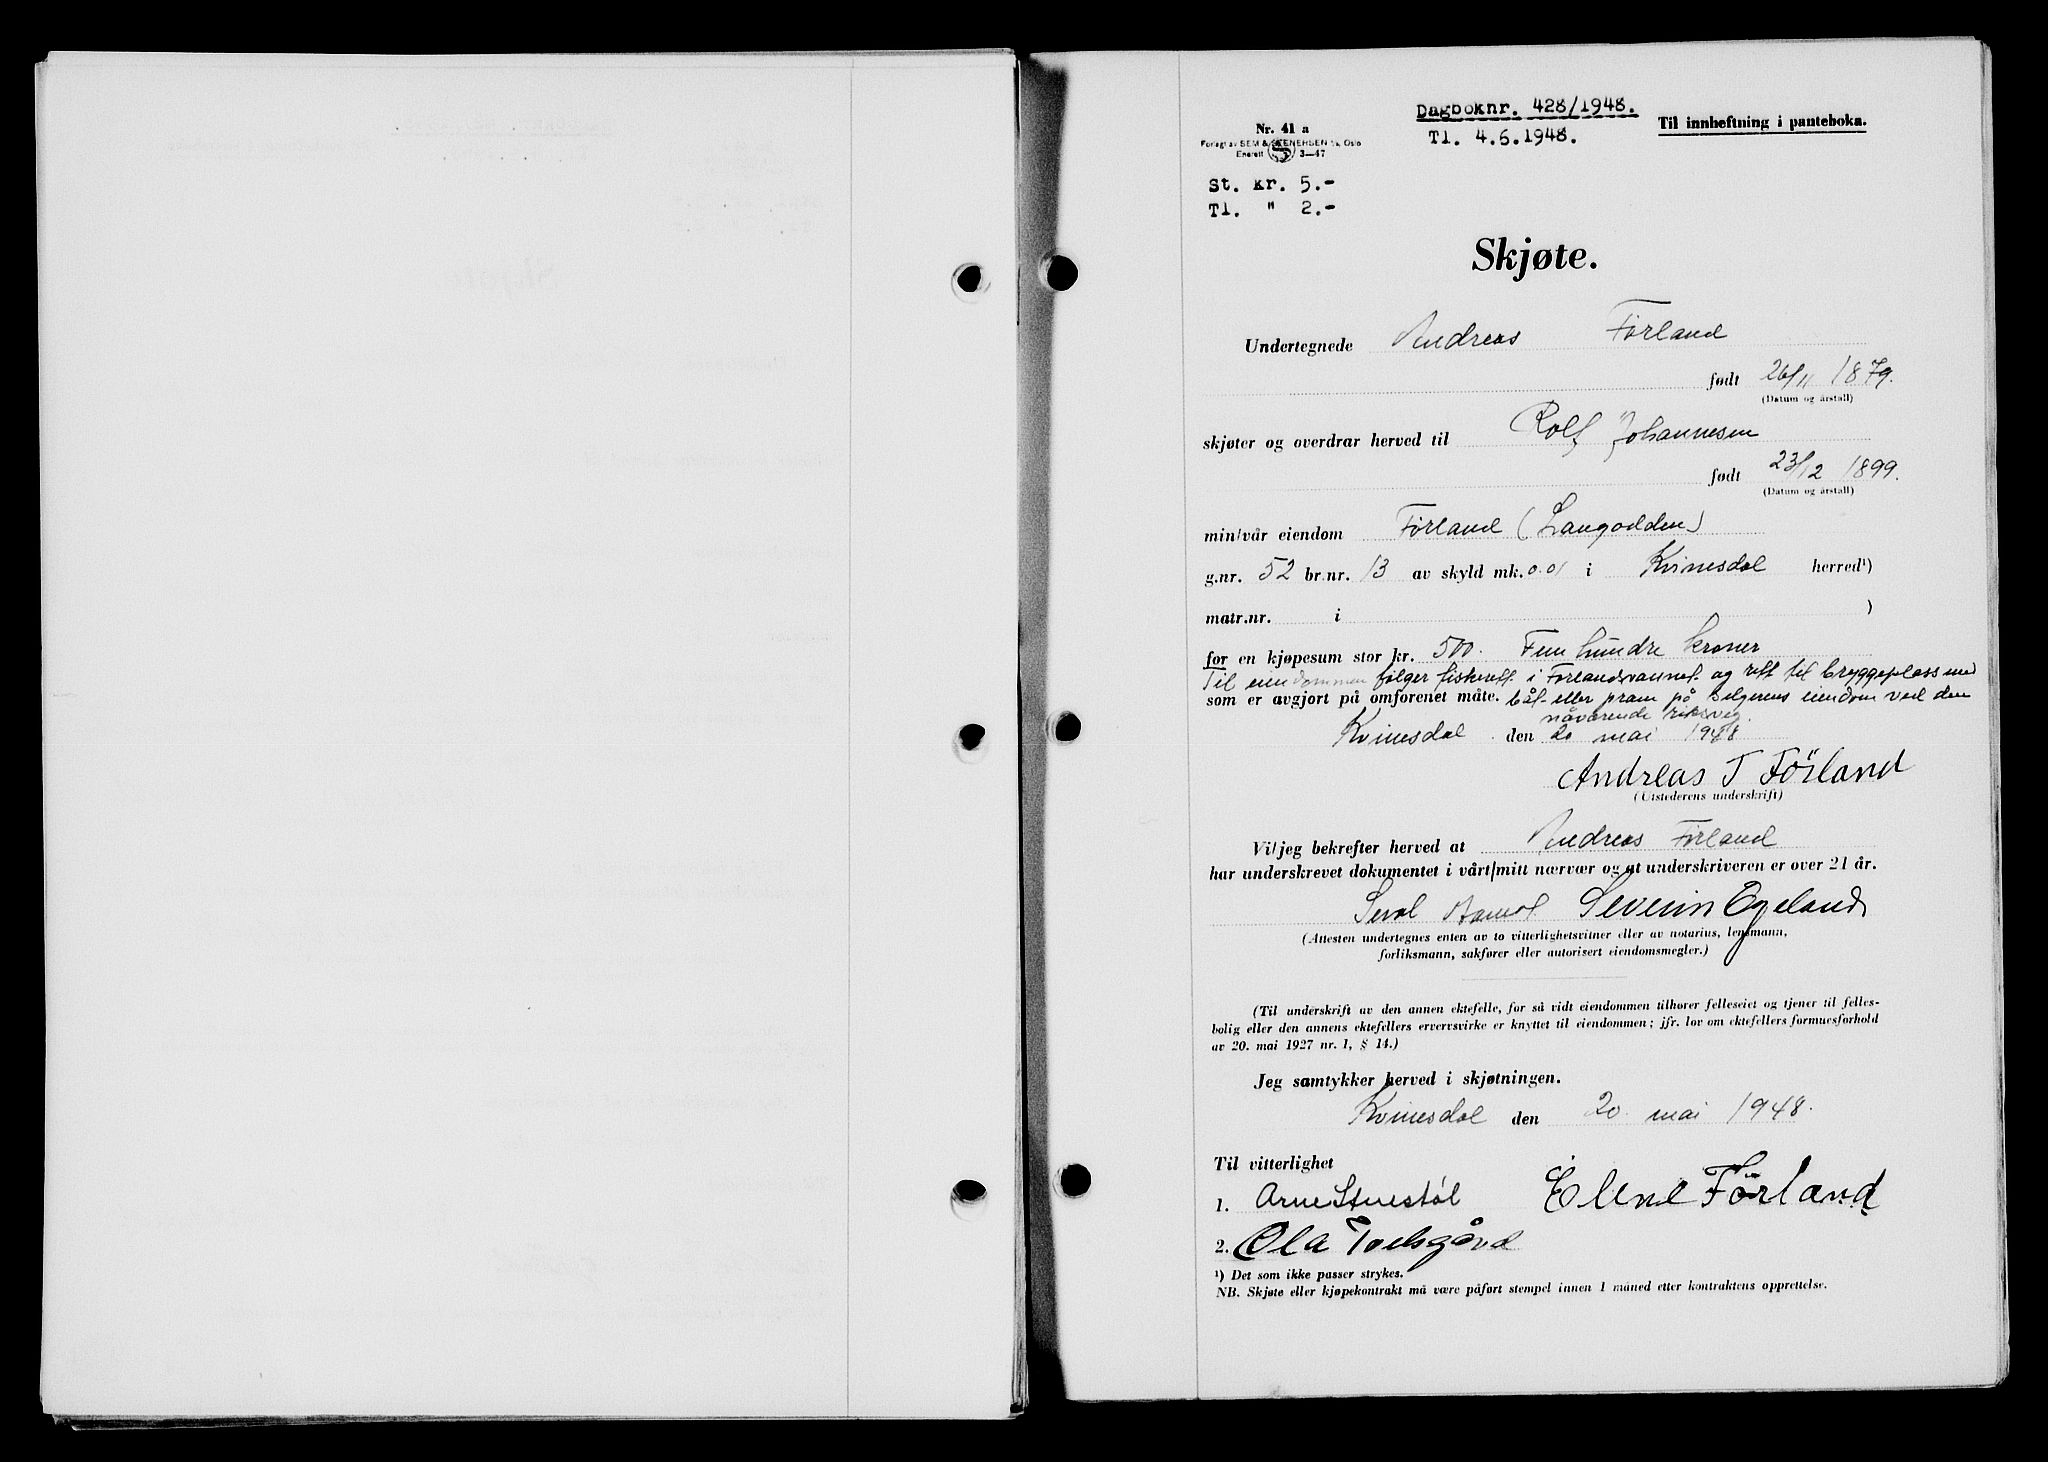 Dagboknr. 428/1948.
Tl. 4.6.1948.
Til innheftning i panteboka.
Nr. 41 a
Forlagt av SEM & STENERSEN A/s, Oslo
Enerett S 3—47
St. kr. 5.-
Tl. " 2.-
Skjøte.
Undertegnede Andreas Førland
født 26/11 1879.
(Datum og årstall)
skjøter og overdrar herved til Rolf Johannesen
født 23/12 1899.
(Datum og årstall)
min/vår eiendom Førland (Langodden)
g.nr. 52 br.nr. 13 av skyld mk. 0.01 i Kvinesdal herred¹)
matr.nr. i )
for en kjøpesum stor kr. 500. Fem hundre kroner
Til eiendommen følger fiskerett i Førlandsvannet og rett til bryggeplass med
som er avgjort på omforenet måte. båt- eller pram på selgerens eiendom ved den
nåværende riksveg.
Kvinesdal den 20 mai 1948
Andreas T Förland
(Utstederens underskrift)
Vi/jeg bekrefter herved at Andreas Førland
har underskrevet dokumentet i vårt/mitt nærvær og at underskriveren er over 21 år.
Severin Egeland
(Attesten undertegnes enten av to vitterlighetsvitner eller av notarius, lensmann,
forliksmann, sakfører eller autorisert eiendomsmegler.)
(Til underskrift av den annen ektefelle, for så vidt eiendommen tilhører felleseiet og tjener til felles-
bolig eller den annens ektefellers ervervsvirke er knyttet til eiendommen; jfr. lov om ektefellers formuesforhold
av 20. mai 1927 nr. 1, § 14.)
Jeg samtykker herved i skjøtningen.
Kvinesdal den 20. mai 1948.
Til vitterlighet
1. Arne Stuestøl Elene Förland
2. Ola
¹) Det som ikke passer strykes.
NB. Skjøte eller kjøpekontrakt må være påført stempel innen 1 måned etter kontraktens opprettelse.